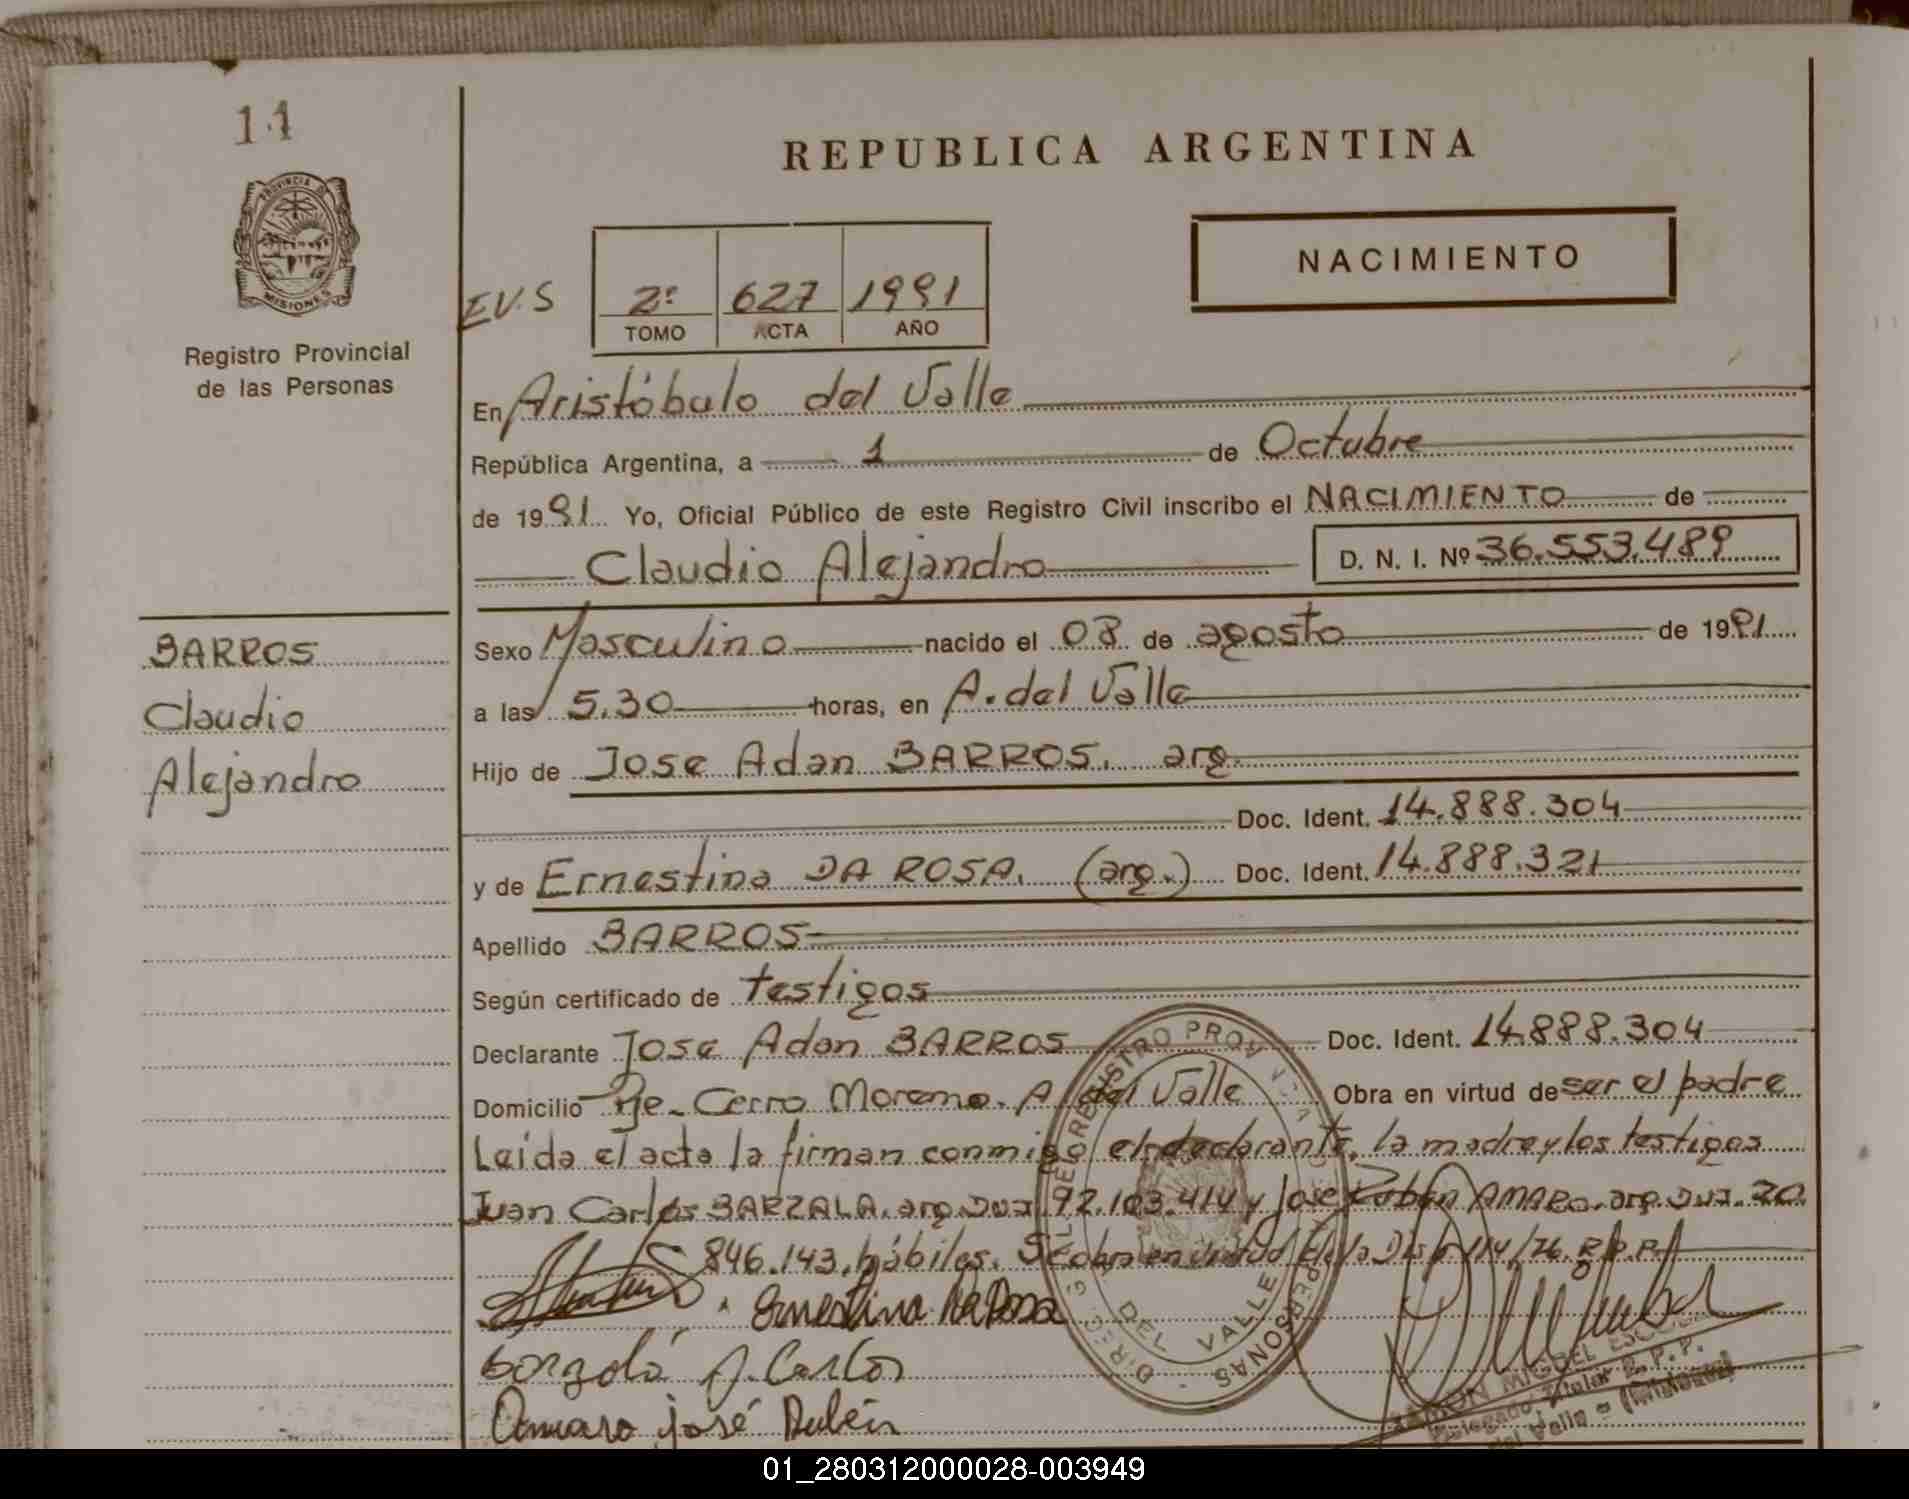 11
PROVINCIA DE
MISIONES
Registro Provincial
de las Personas
REPUBLICA ARGENTINA
NACIMIENTO
EV.S
2º 627 1991
TOMO ACTA AÑO
En Aristóbulo del Valle
República Argentina, a 1 de Octubre
de 1991 Yo, Oficial Público de este Registro Civil inscribo el NACIMIENTO de
Claudio Alejandro D. N. I. Nº 36.553.489
BARROS
Claudio
Alejandro
Sexo Masculino nacido el 08 de agosto de 1991
a las 5.30 horas, en A. del Valle
Hijo de Jose Adan BARROS. arg.
Doc. Ident. 14.888.304
y de Ernestina DA ROSA. (arg.) Doc. Ident. 14.888.321
Apellido BARROS
Según certificado de testigos
Declarante Jose Adan BARROS Doc. Ident. 14.888.304
Domicilio Pje. Cerro Moreno. A. del Valle Obra en virtud de ser el padre
Leída el acta la firman conmigo el declarante, la madre y los testigos
Juan Carlos BARZALA. arg. DNI. 92.103.414 y Jose Ruben AMARO. arg. DNI. 20.
846.143. hábiles. Se obra en virtud de la Disp. 114/76. R.P.P.
Ernestina da Rosa
J. Carlos
Amaro José Rubén
DIREC. GRAL. DEL REGISTRO PROVINCIAL DE LAS PERSONAS
DEL VALLE
RAMON MIGUEL ESCOBAR
Delegado Titular R. P. P.
del Valle - (Misiones)
01_280312000028-003949